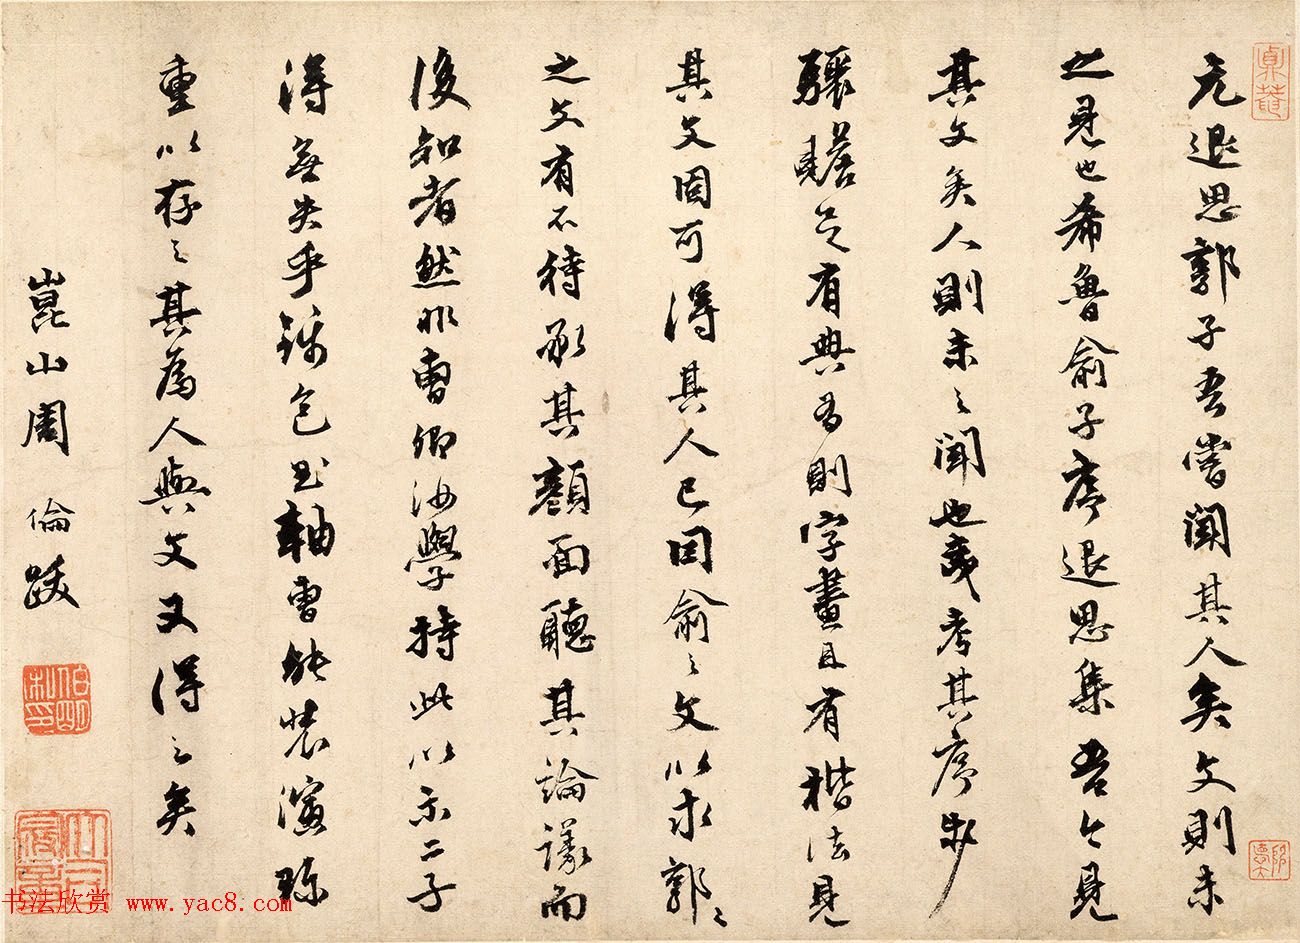 元退思郭子吾嘗聞其人矣文則未
之見也希魯俞子序退思集吾今見
其文矣人則未之聞也爰考其序妙
驪贍足有典有則字畫且有楷法見
其文固可得其人已因俞之文以求郭々
之文有不待承其顏面聽其論議而
後知者然非曹卿汝學持此以示二子
得無失乎錦包玉軸曹能裝潢珍
重以存之其為人與文又得之矣
崑山周倫跋
书法欣赏 www.yac8.com